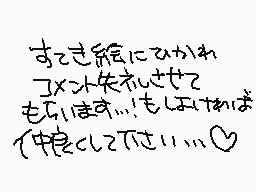 すてき絵にひかれ
コメント失礼させて
もらいます…!もしよければ
仲良くして下さい…♡